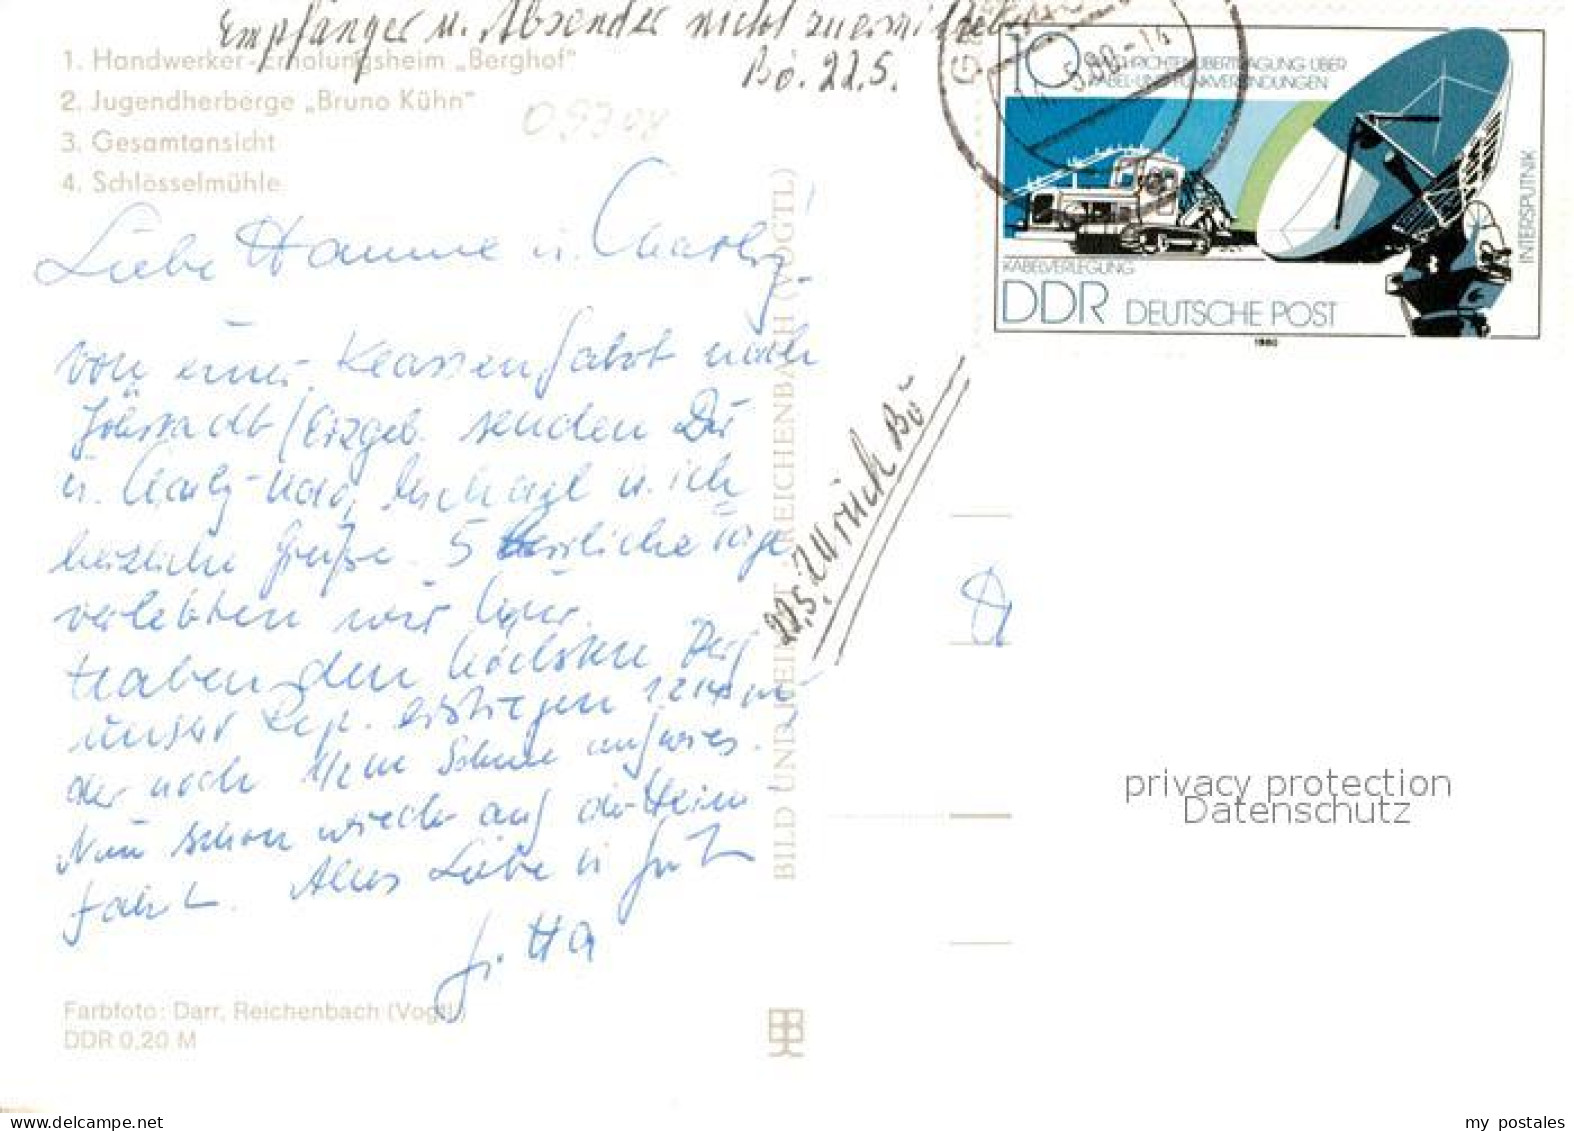 Empfänger u. Absender nicht zu ermitteln
Bö. 22.5.
1. Handwerker-Erholungsheim „Berghof“
2. Jugendherberge „Bruno Kühn“
3. Gesamtansicht
4. Schlösselmühle
09708
Liebe Hanne u. Charly!
von einer Klassenfahrt nach
Jöhstadt/Erzgeb. senden Dir
u. Charly
u. ich
herzliche Grüße. 5 herrliche Tage
verlebten wir hier.
Haben den höchsten Berg
unser Rep. erstiegen 1214 m
der noch 1/2 m Schnee aufwies.
Nun schon wieder auf der Heim-
fahrt. Alles Liebe u. Gute
Jitta
Farbfoto: Darr, Reichenbach (Vogtl.)
DDR 0,20 M
BILD UND HEIMAT REICHENBACH (VOGTL)
22.5. Zurück Bö
10
NACHRICHTENÜBERTRAGUNG ÜBER
KABEL- UND FUNKVERBINDUNGEN
INTERSPUTNIK
KABELVERLEGUNG
DDR DEUTSCHE POST
1980
privacy protection
Datenschutz
my postales